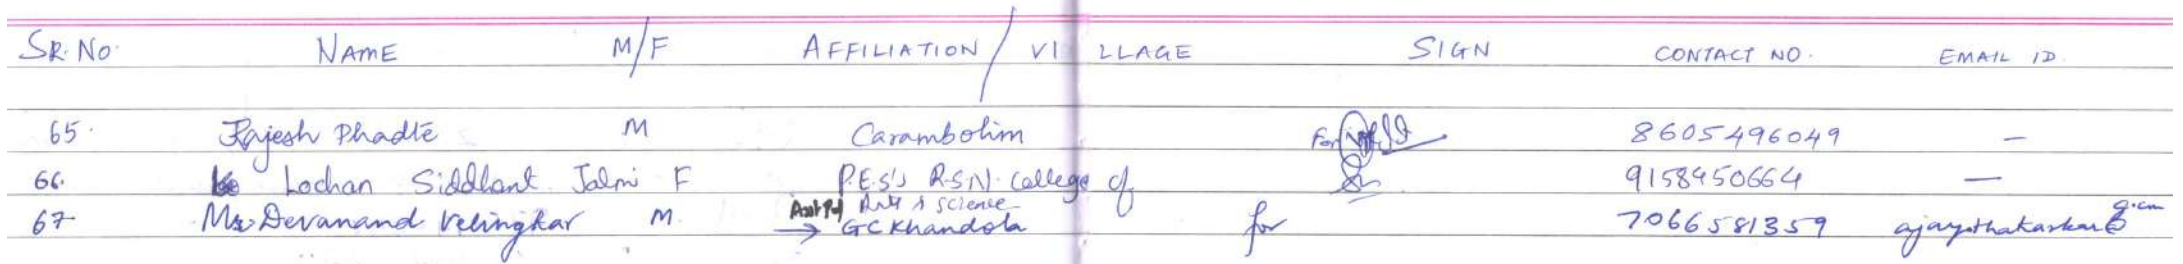 SR. NO. NAME M/F AFFILIATION / VILLAGE SIGN CONTACT NO. EMAIL ID.
65. Rajesh Phadte M Carambolim For 8605496049 —
66. Lochan Siddhant Jalmi F P.E.S's R.S.N. College of 9158950664 —
Arts & Science
67 Mr. Devanand Velingkar M Asst Prof → GC Khandola for 7066581359 ajaythakarkar@g.cm